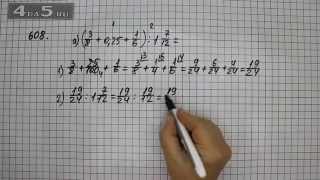 4DA5.RU
608.
а) (3/8 + 0,25 + 1/6) : 1 7/12 =
1) 3/8 + 25/100 + 1/6 = 3/8 + 1/4 + 1/6 = 9/24 + 6/24 + 4/24 = 19/24
2) 19/24 : 1 7/12 = 19/24 : 19/12 = 19